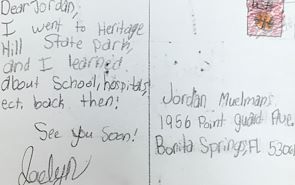 Dear Jordan,
I went to Heritage
Hill State Park,
and I learned
about School, hospitals,
ect. back then!
See you Soon!
Joelyn
Jordan Muelmans
1956 Point guard Ave.
Bonita Springs, FL